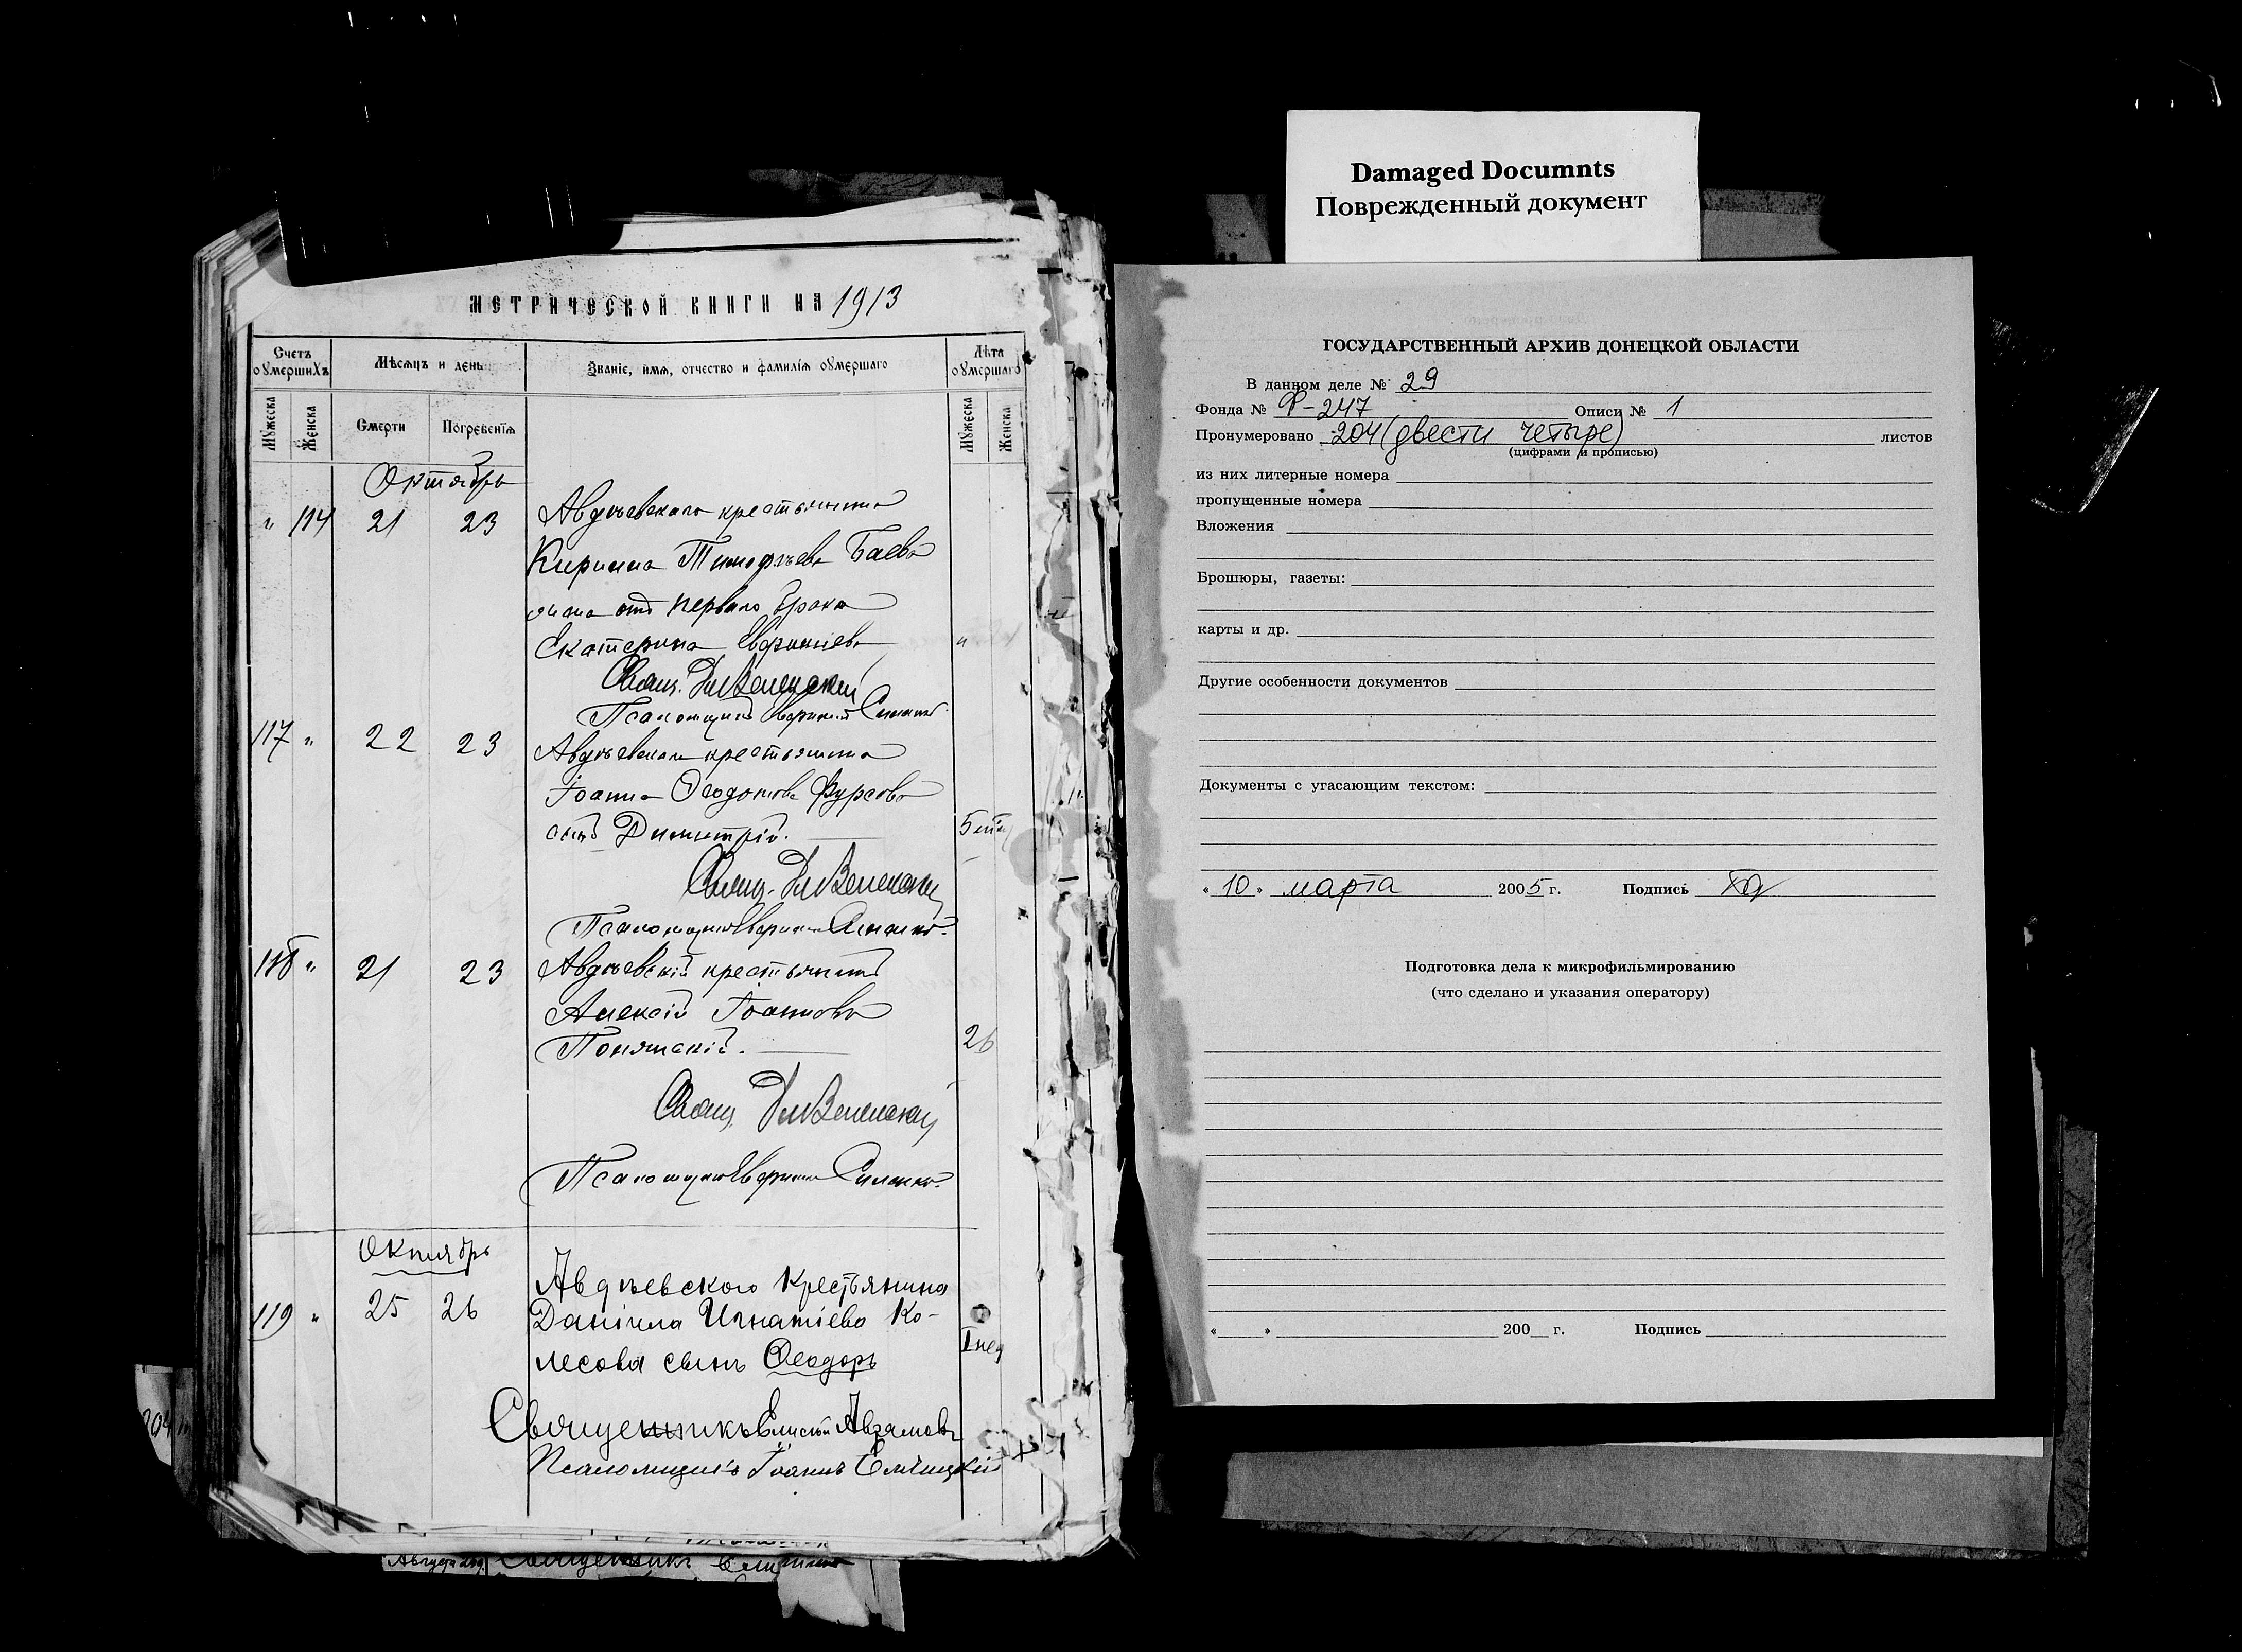 МЕТРИЧЕСКОЙ КНИГИ НА 1913
Счетъ оумершихъ
Мѣсяцъ и день
Званіе, имя, отчество и фамилія оумершаго
Лѣта оумершаго
Мужеска
Женска
Смерти
Погребенія
Мужеска
Женска
Октябрь
" 114 21 23 Авдѣевскаго крестьянина
Кирилла Тимофѣева Баева
жена отъ перваго брака
Екатерина "
Свящ.
Псаломщикъ
117 " 22 23 Авдѣевскаго крестьянина
Іоанна Ѳеодотова Фурсова
сынъ Димитрій. 5
Свящ.
Псаломщикъ
118 " 21 23 Авдѣевскій крестьянинъ
Алексій Іоанновъ
26
Свящ.
Псаломщикъ
Октябрь
Авдѣевского крестьянина
119 " 25 26 Даніила Игнатіева Ко-
лесова сынъ Ѳеодоръ 1 нед
Священникъ Елисей
Псаломщикъ Іоаннъ
Damaged Documnts
Поврежденный документ
ГОСУДАРСТВЕННЫЙ АРХИВ ДОНЕЦКОЙ ОБЛАСТИ
В данном деле № 29
Фонда № Ф-247 Описи № 1
Пронумеровано 204 (двести четыре) листов
(цифрами и прописью)
из них литерные номера
пропущенные номера
Вложения
Брошюры, газеты:
карты и др.
Другие особенности документов
Документы с угасающим текстом:
« 10 » марта 2005 г. Подпись
Подготовка дела к микрофильмированию
(что сделано и указания оператору)
« » 200 г. Подпись